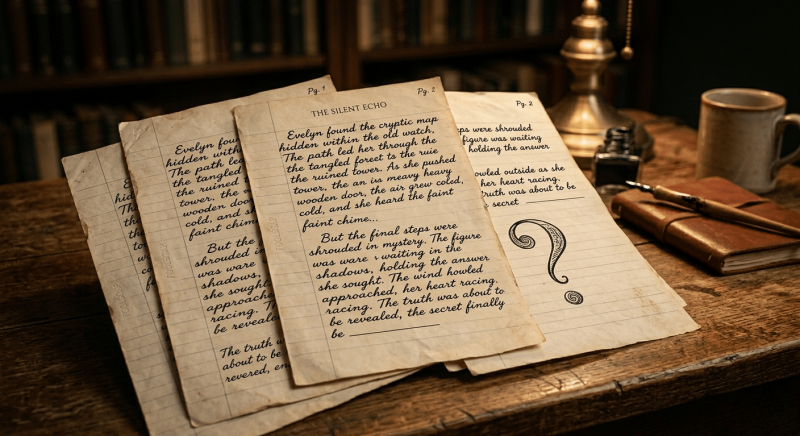 Pg. 1
Evelyn fou
hidden with
The path led
the tangled
the ruined
tower, the a
wooden door
cold, and s
faint chime
But the
shrouded in
was ware
shadows,
she sought
approached
racing. T
be reveale
The truth w
about to be
revered, en
THE SILENT ECHO
Pg. 2
Evelyn found the cryptic map
hidden within the old watch,
The path led her through the
the tangled forest to the ruie
the ruined tower. As she pushed
tower, the an is meavy heavy
wooden door, the air grew cold,
cold, and she heard the faint
faint chime...
But the final steps were
shrouded in mystery. The figure
was ware waiting in the
shadows, holding the answer
she sought. The wind howled
approached, her heart racing.
racing. The truth was about to
be revealed, the secret finally
be ________
Pg. 3
ps were shrouded
figure was waiting
holding the answer
owled outside as she
her heart racing.
truth was about to be
secret ________
?